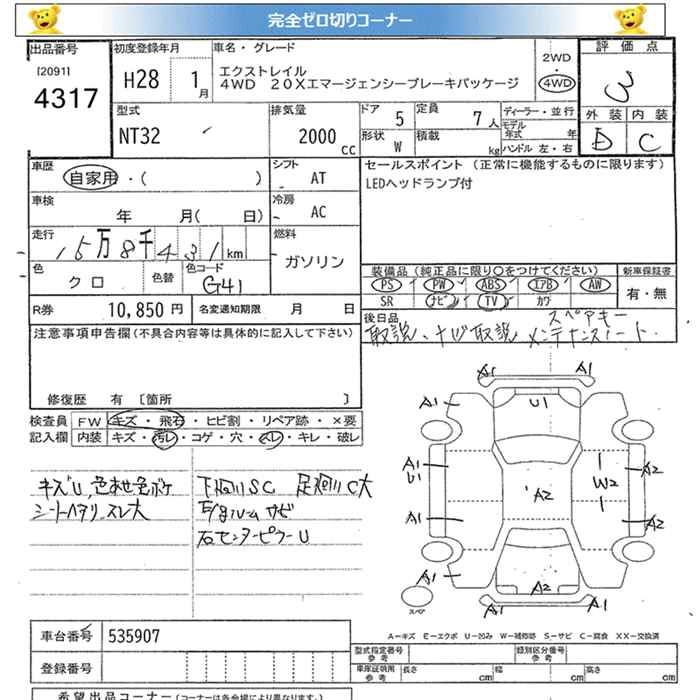 完全ゼロ切りコーナー
出品番号 初度登録年月 車名・グレード 2WD 評価点
[2091] 4317 H28 1月 エクストレイル 4WD 3
4WD 20Xエマージェンシーブレーキパッケージ
外装 内装
D C
型式 排気量 ドア 5 定員 7人 ディーラー・並行
NT32 2000cc 形状 W 積載 kg モデル年式 年
ハンドル 左・右
車歴 シフト セールスポイント (正常に機能するものに限ります)
自家用・( ) AT LEDヘッドランプ付
車検 年 月( 日) 冷房 AC
走行 15万8千431km 燃料 ガソリン
色 クロ 色替 色コード G41
装備品(純正品に限り〇をつけてください) 新車保証書
PS PW ABS エアB AW 有・無
SR ナビ TV カワ
R券 10,850円 名変通知期限 月 日
後日品 スペアキー
取説、ナビ取説 メンテナンスノート
注意事項申告欄(不具合内容等は具体的に記入して下さい)
修復歴 有 [箇所 ]
検査員 FW キズ・飛石・ヒビ割・リペア跡・×要
記入欄 内装 キズ・汚レ・コゲ・穴・スレ・キレ・破レ
キズU、色あせ色ボケ 下廻りSC 足廻りC大
シートヘタリ、スレ大 E/gルームサビ
右センターピラーU
A1 A1
A1 U1 A1
A1 U1 W2 A2
A2
A1 A2
A1 A2
A1 A1
スペア
A-キズ E-エクボ U-凹み W-補修跡 S-サビ C-腐食 XX-交換済
車台番号 535907
型式指定番号 参考 類別区分番号 参考
登録番号
車庫証明用 参考 長さ cm 幅 cm 高さ cm
希望出品コーナー (コーナーは各会場により異なります。)